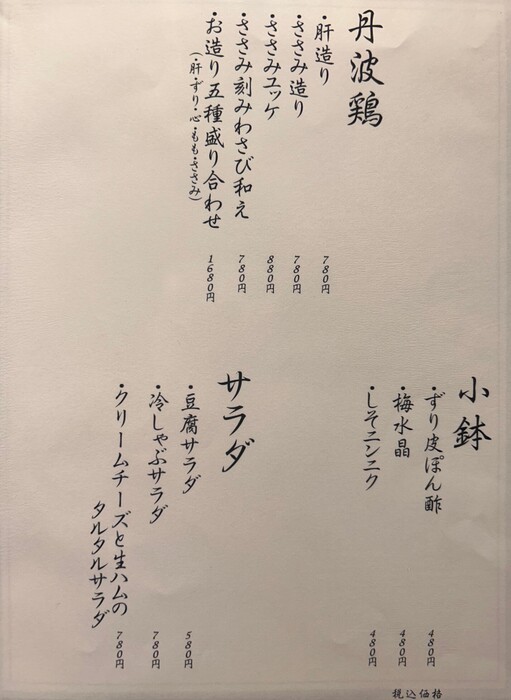 丹波鶏
・肝造り 780円
・ささみ造り 780円
・ささみユッケ 880円
・ささみ刻みわさび和え 780円
・お造り五種盛り合わせ 1680円
(・肝・ずり・心・もも・ささみ)
小鉢
・ずり皮ぽん酢 480円
・梅水晶 480円
・しそニンニク 480円
サラダ
・豆腐サラダ 580円
・冷しゃぶサラダ 780円
・クリームチーズと生ハムの
タルタルサラダ 780円
税込価格